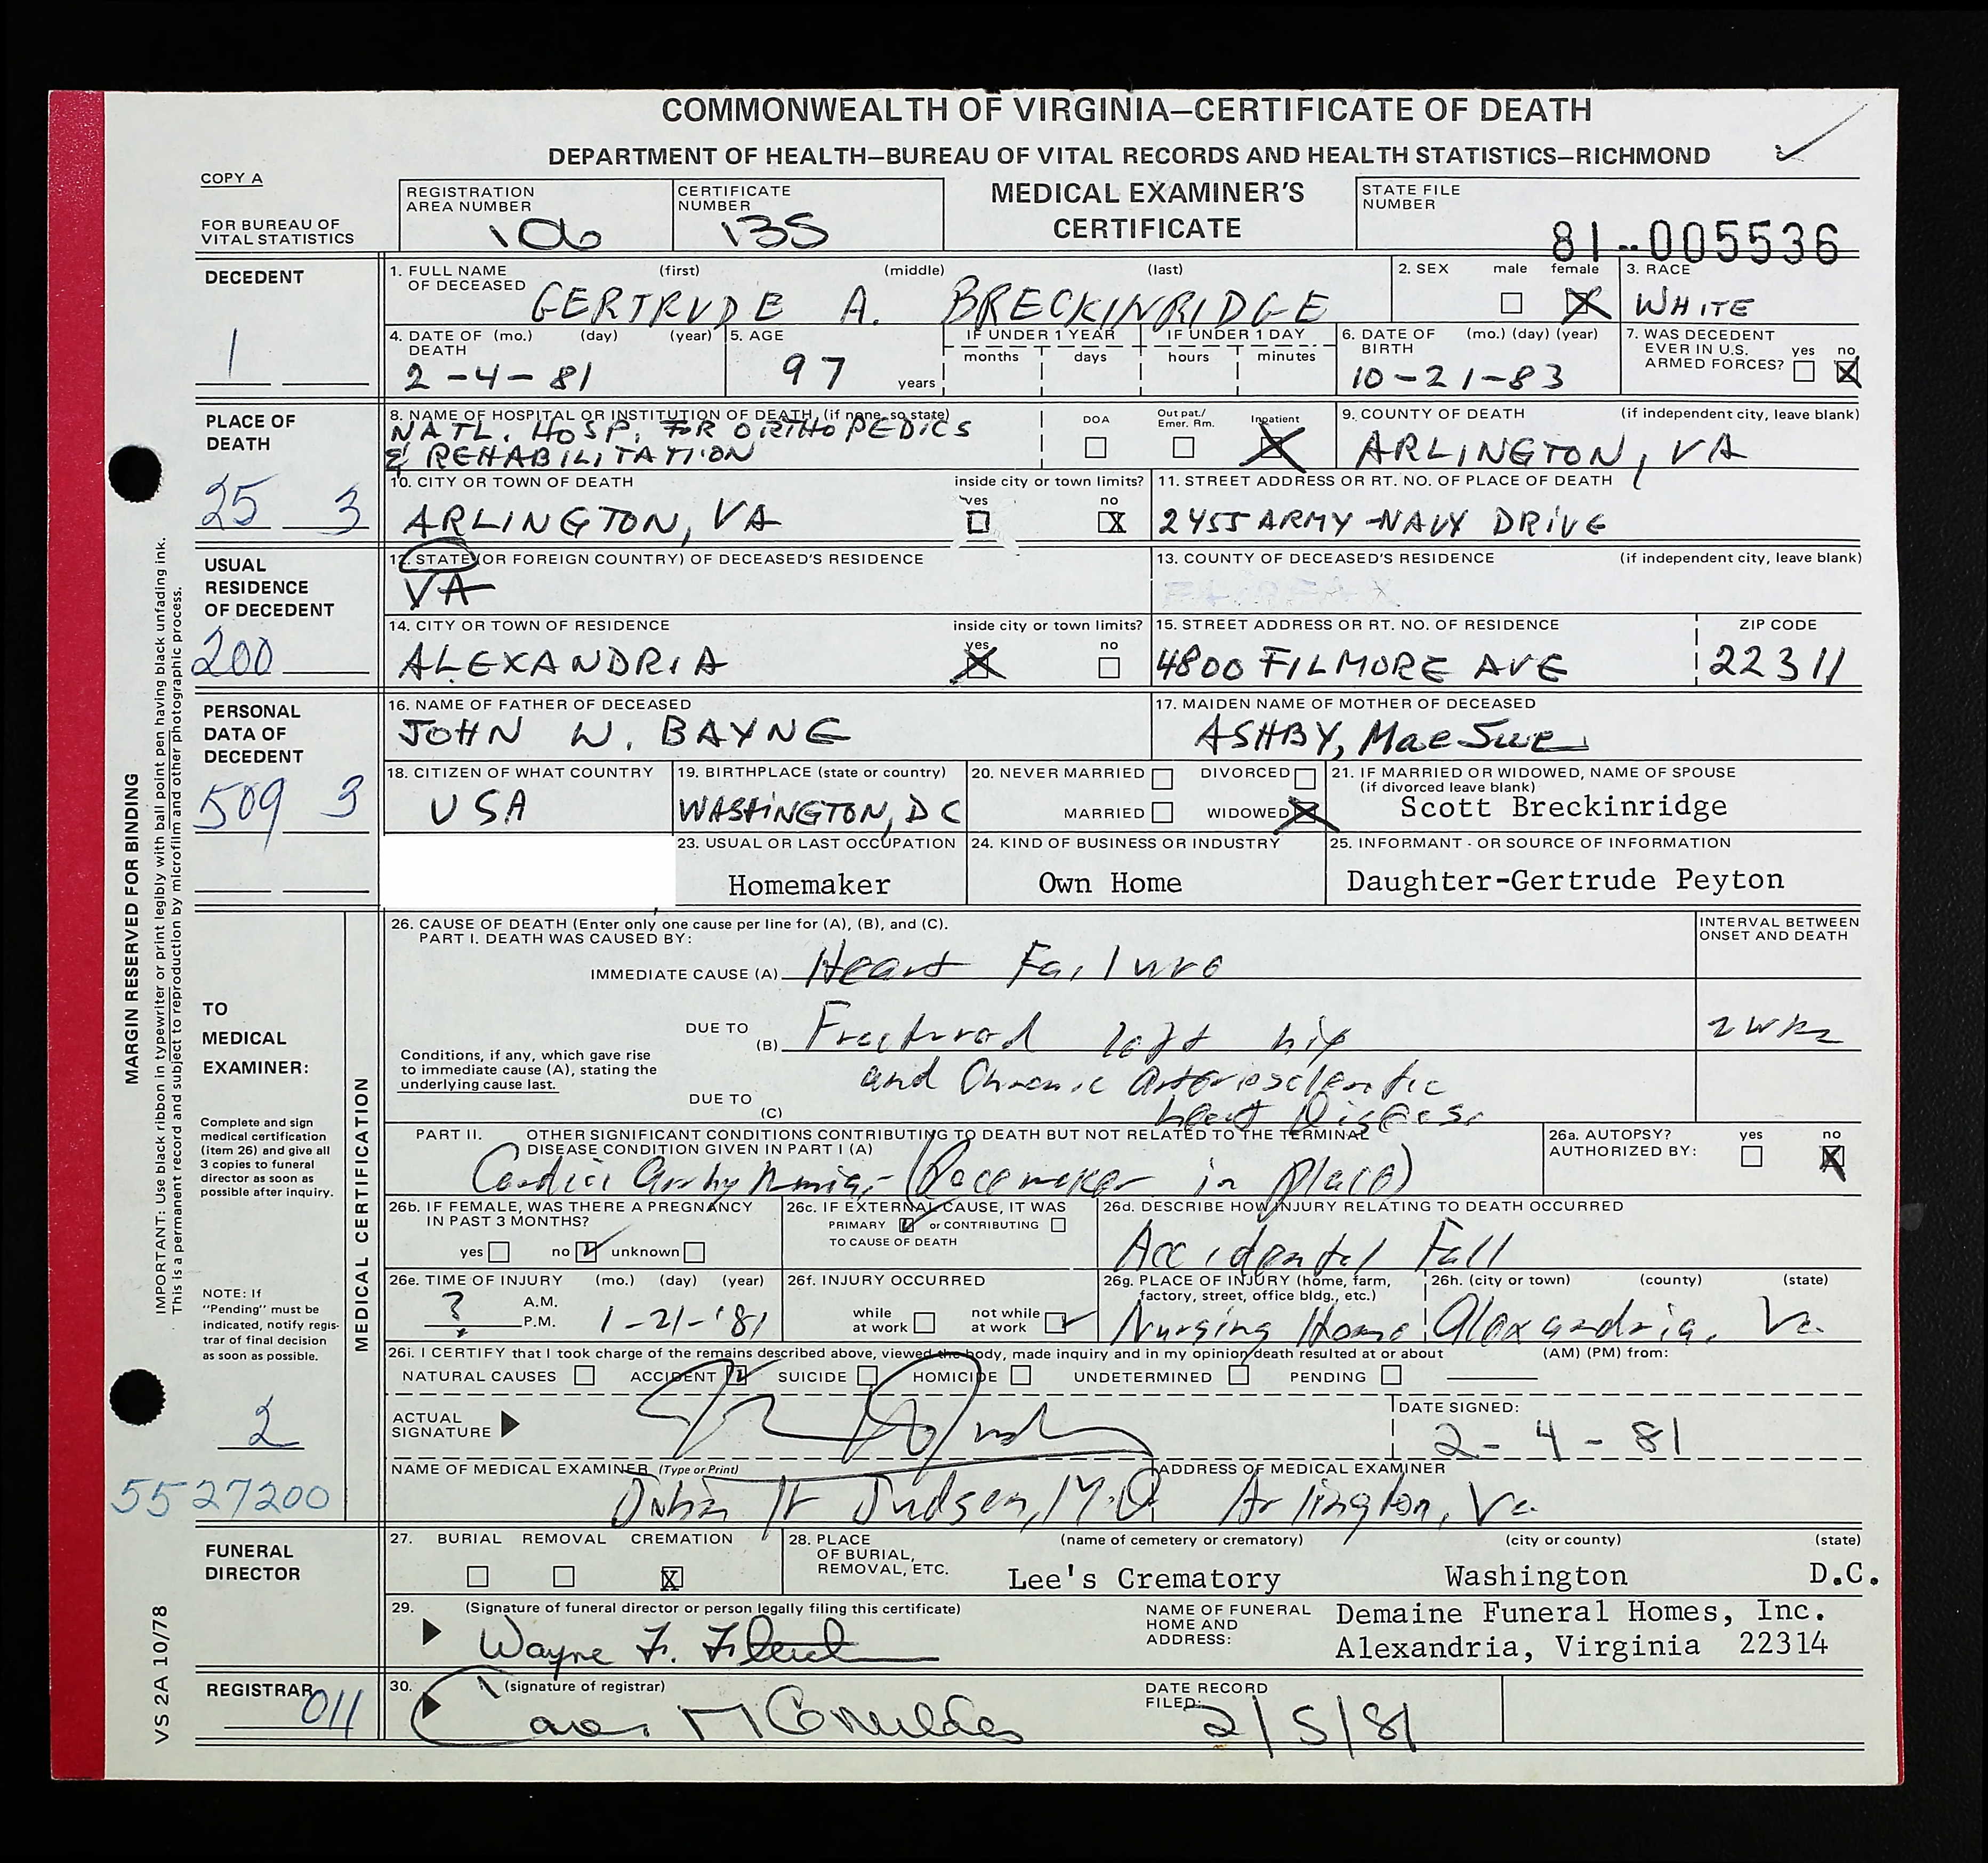 COMMONWEALTH OF VIRGINIA—CERTIFICATE OF DEATH
DEPARTMENT OF HEALTH—BUREAU OF VITAL RECORDS AND HEALTH STATISTICS—RICHMOND
COPY A
FOR BUREAU OF VITAL STATISTICS
REGISTRATION AREA NUMBER 106
CERTIFICATE NUMBER 135
MEDICAL EXAMINER'S CERTIFICATE
STATE FILE NUMBER 81-005536
DECEDENT
1
1. FULL NAME OF DECEASED (first) (middle) (last)
GERTRUDE A. BRECKINRIDGE
2. SEX male female X
3. RACE WHITE
4. DATE OF DEATH (mo.) (day) (year) 2-4-81
5. AGE 97 years
IF UNDER 1 YEAR months days
IF UNDER 1 DAY hours minutes
6. DATE OF BIRTH (mo.) (day) (year) 10-21-83
7. WAS DECEDENT EVER IN U.S. ARMED FORCES? yes no X
PLACE OF DEATH
25 3
8. NAME OF HOSPITAL OR INSTITUTION OF DEATH (if none, so state)
NATL. HOSP. FOR ORTHOPEDICS
& REHABILITATION
DOA Out pat./ Emer. Rm. Inpatient X
9. COUNTY OF DEATH (if independent city, leave blank)
ARLINGTON, VA
10. CITY OR TOWN OF DEATH inside city or town limits? yes no X
ARLINGTON, VA
11. STREET ADDRESS OR RT. NO. OF PLACE OF DEATH
2455 ARMY-NAVY DRIVE
USUAL RESIDENCE OF DECEDENT
200
12. STATE (OR FOREIGN COUNTRY) OF DECEASED'S RESIDENCE
VA
13. COUNTY OF DECEASED'S RESIDENCE (if independent city, leave blank)
14. CITY OR TOWN OF RESIDENCE inside city or town limits? yes X no
ALEXANDRIA
15. STREET ADDRESS OR RT. NO. OF RESIDENCE ZIP CODE
4800 FILMORE AVE 22311
PERSONAL DATA OF DECEDENT
509 3
16. NAME OF FATHER OF DECEASED
JOHN W. BAYNE
17. MAIDEN NAME OF MOTHER OF DECEASED
ASHBY, Mae Sue
18. CITIZEN OF WHAT COUNTRY
USA
19. BIRTHPLACE (state or country)
WASHINGTON, DC
20. NEVER MARRIED DIVORCED
MARRIED WIDOWED X
21. IF MARRIED OR WIDOWED, NAME OF SPOUSE
(if divorced leave blank)
Scott Breckinridge
23. USUAL OR LAST OCCUPATION
Homemaker
24. KIND OF BUSINESS OR INDUSTRY
Own Home
25. INFORMANT - OR SOURCE OF INFORMATION
Daughter-Gertrude Peyton
MARGIN RESERVED FOR BINDING
IMPORTANT: Use black ribbon in typewriter or print legibly with ball point pen having black unfading ink.
This is a permanent record and subject to reproduction by microfilm and other photographic process.
VS 2A 10/78
TO MEDICAL EXAMINER:
Complete and sign medical certification (item 26) and give all 3 copies to funeral director as soon as possible after inquiry.
NOTE: If "Pending" must be indicated, notify registrar of final decision as soon as possible.
2
5527200
MEDICAL CERTIFICATION
26. CAUSE OF DEATH (Enter only one cause per line for (A), (B), and (C).
PART I. DEATH WAS CAUSED BY:
INTERVAL BETWEEN ONSET AND DEATH
IMMEDIATE CAUSE (A) Heart Failure
DUE TO (B) Fractured left hip 2 wks
Conditions, if any, which gave rise to immediate cause (A), stating the underlying cause last.
and Chronic Arteriosclerotic
DUE TO (C) heart Disease
PART II. OTHER SIGNIFICANT CONDITIONS CONTRIBUTING TO DEATH BUT NOT RELATED TO THE TERMINAL DISEASE CONDITION GIVEN IN PART I (A)
Cardiac arrhythmia, - (Pacemaker in place)
26a. AUTOPSY? AUTHORIZED BY: yes no X
26b. IF FEMALE, WAS THERE A PREGNANCY IN PAST 3 MONTHS?
yes no ✓ unknown
26c. IF EXTERNAL CAUSE, IT WAS
PRIMARY ✓ or CONTRIBUTING
TO CAUSE OF DEATH
26d. DESCRIBE HOW INJURY RELATING TO DEATH OCCURRED
Accidental Fall
26e. TIME OF INJURY (mo.) (day) (year)
? A.M. P.M. 1-21-'81
26f. INJURY OCCURRED
while at work not while at work ✓
26g. PLACE OF INJURY (home, farm, factory, street, office bldg., etc.)
Nursing Home
26h. (city or town) (county) (state)
Alexandria, Va.
26i. I CERTIFY that I took charge of the remains described above, viewed the body, made inquiry and in my opinion death resulted at or about (AM) (PM) from:
NATURAL CAUSES ACCIDENT ✓ SUICIDE HOMICIDE UNDETERMINED PENDING
ACTUAL SIGNATURE
DATE SIGNED:
2-4-81
NAME OF MEDICAL EXAMINER (Type or Print)
Judson, M.D.
ADDRESS OF MEDICAL EXAMINER
Arlington, Va
FUNERAL DIRECTOR
27. BURIAL REMOVAL CREMATION X
28. PLACE OF BURIAL, REMOVAL, ETC. (name of cemetery or crematory) (city or county) (state)
Lee's Crematory Washington D.C.
29. (Signature of funeral director or person legally filing this certificate)
Wayne F.
NAME OF FUNERAL HOME AND ADDRESS:
Demaine Funeral Homes, Inc.
Alexandria, Virginia 22314
REGISTRAR
011
30. (signature of registrar)
DATE RECORD FILED:
2/5/81